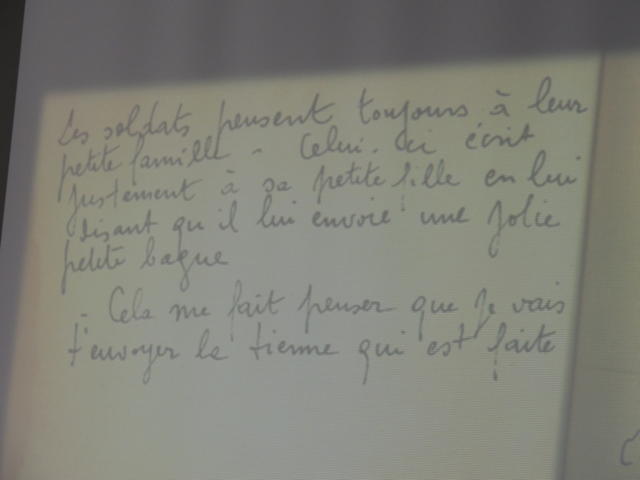 Les soldats pensent toujours à leur
petite famille - Celui-ci écrit
justement à sa petite fille en lui
disant qu'il lui envoie une jolie
petite bague
- Cela me fait penser que je vais
t'envoyer la tienne qui est faite